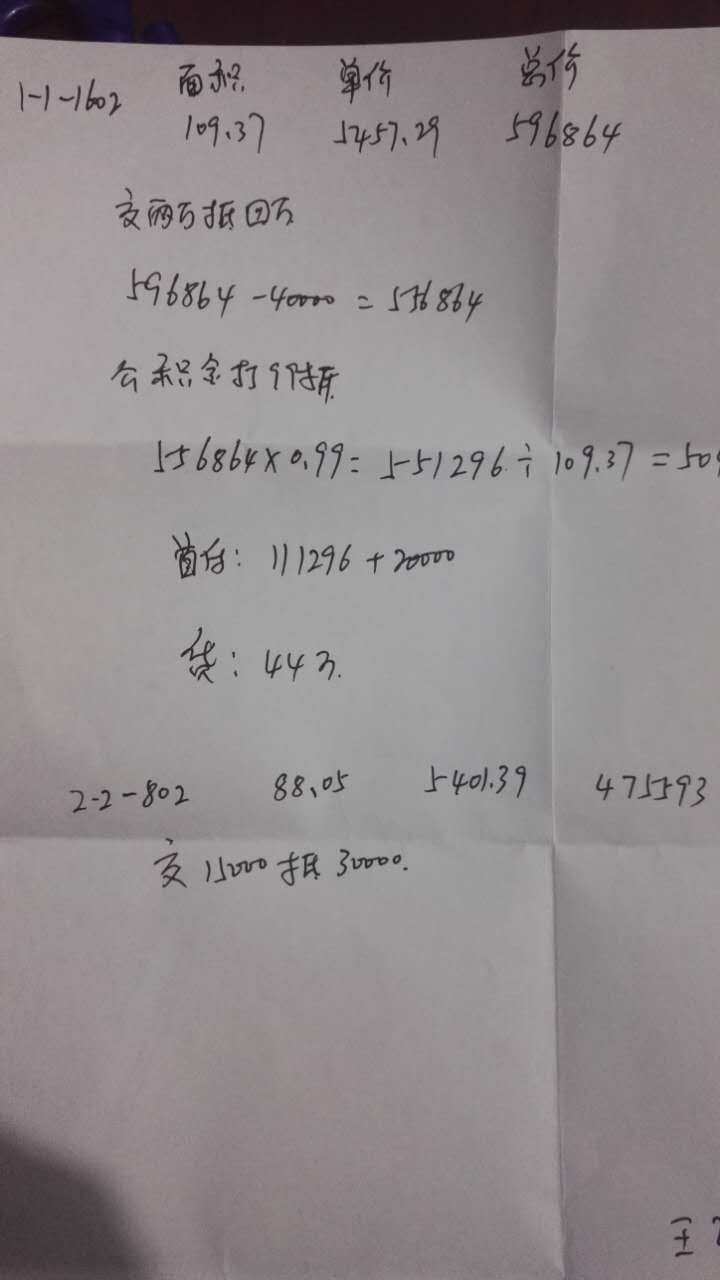 面积 单价 总价
1-1-1602 109.37 5457.29 596864
交两万抵四万
596864 - 40000 = 556864
公积金打99折
556864 × 0.99 = 551296 ÷ 109.37 = 50
首付: 111296 + 20000
贷: 44万.
2-2-802 88.05 5401.39 475593
交 15000 抵 30000.
王